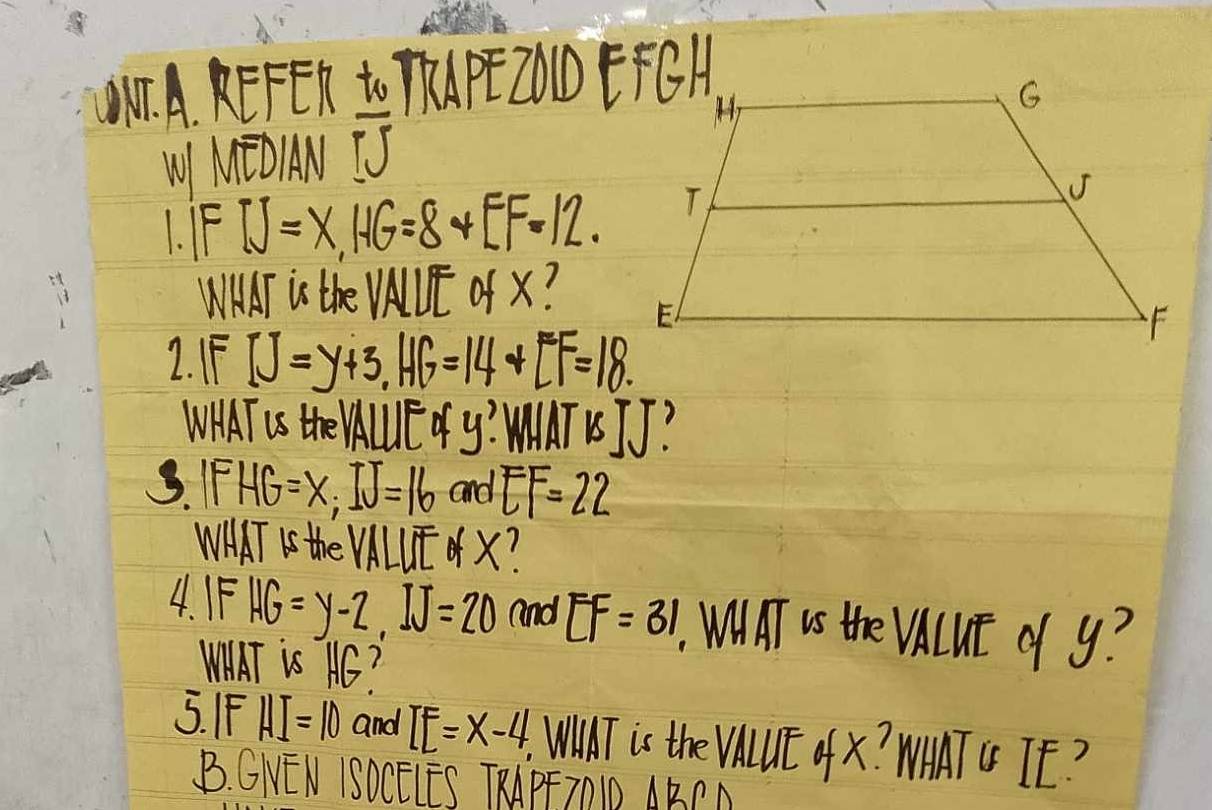 CONT. A. REFER to TRAPEZOID EFGH
W/ MEDIAN IJ
1. IF IJ = X, HG=8 & EF=12.
WHAT is the VALUE of X?
2. IF IJ = y+3, HG=14 & EF=18.
WHAT is the VALUE of y? WHAT is IJ?
3. IF HG=X; IJ=16 and EF=22
WHAT is the VALUE of X?
4. IF HG = y-2, IJ=20 and EF = 31, WHAT is the VALUE of y?
WHAT is HG?
5. IF HI=10 and IE=X-4, WHAT is the VALUE of X? WHAT is IE?
B. GIVEN ISOCELES TRAPEZOID ABCD
H G
I J
E F